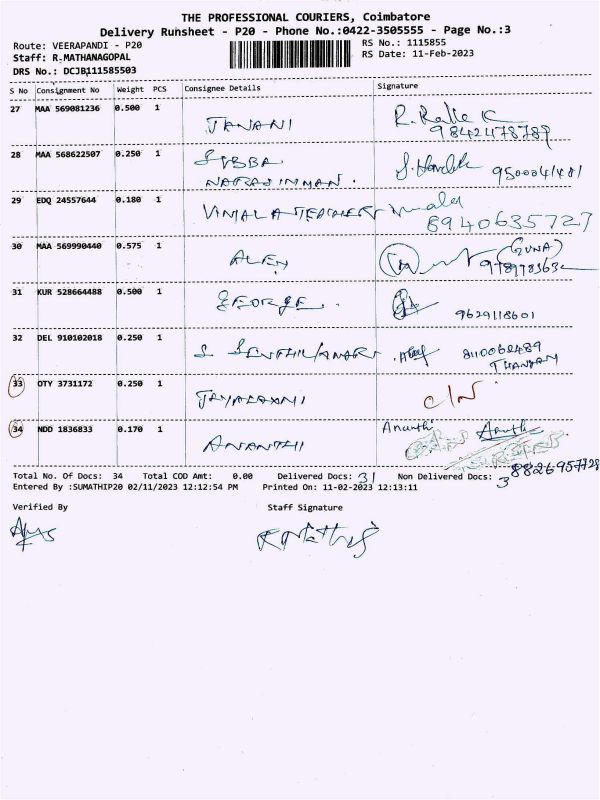 THE PROFESSIONAL COURIERS, Coimbatore
Delivery Runsheet - P20 - Phone No.:0422-3505555 - Page No.:3
Route: VEERAPANDI - P20
RS No.: 1115855
Staff: R.MATHANAGOPAL
RS Date: 11-Feb-2023
DRS No.: DCJB111585503
S No Consignment No Weight PCS Consignee Details Signature
27 MAA 569081236 0.500 1 JANANI
9842478789
28 MAA 568622507 0.250 1 SUBBA
NAGAJINMAN.
29 EDQ 24557644 0.180 1 VIMALA TEACHER
8940635727
30 MAA 569990440 0.575 1 ALEN (GUNA)
31 KUR 528664488 0.500 1 GEORGE.
9629118601
32 DEL 910102018 0.250 1 8110062489
33 OTY 3731172 0.250 1 JAYALAXMI C/N
34 NDD 1836833 0.170 1 ANANTHI Ananthi
8826957728
Total No. Of Docs: 34 Total COD Amt: 0.00 Delivered Docs: 31 Non Delivered Docs: 3
Entered By :SUMATHIP20 02/11/2023 12:12:54 PM Printed On: 11-02-2023 12:13:11
Verified By Staff Signature